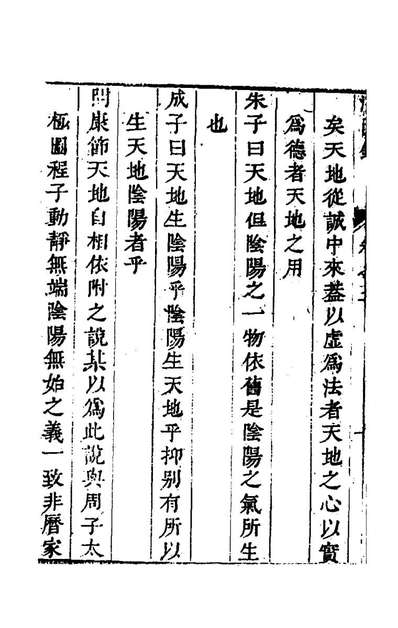 矣天地從誠中來葢以虛爲法者天地之心以實
爲德者天地之用
朱子曰天地但陰陽之一物依舊是陰陽之氣所生
也
成子曰天地生陰陽乎陰陽生天地乎抑别有所以
生天地陰陽者乎
問康節天地自相依附之說某以爲此說與周子太
極圖程子動靜無端陰陽無始之義一致非曆家